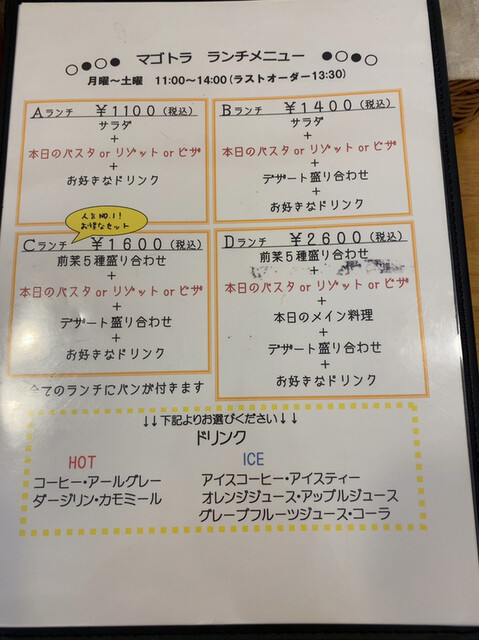 マゴトラ ランチメニュー
月曜～土曜 11:00～14:00(ラストオーダー13:30)
Aランチ ￥1100(税込)
サラダ
+
本日のパスタ or リゾット or ピザ
+
お好きなドリンク
Bランチ ￥1400(税込)
サラダ
+
本日のパスタ or リゾット or ピザ
+
デザート盛り合わせ
+
お好きなドリンク
人気NO.1!
お得なセット
Cランチ ￥1600(税込)
前菜5種盛り合わせ
+
本日のパスタ or リゾット or ピザ
+
デザート盛り合わせ
+
お好きなドリンク
Dランチ ￥2600(税込)
前菜5種盛り合わせ
+
本日のパスタ or リゾット or ピザ
+
本日のメイン料理
+
デザート盛り合わせ
+
お好きなドリンク
全てのランチにパンが付きます
↓↓下記よりお選びください↓↓
ドリンク
HOT
コーヒー・アールグレー
ダージリン・カモミール
ICE
アイスコーヒー・アイスティー
オレンジジュース・アップルジュース
グレープフルーツジュース・コーラ